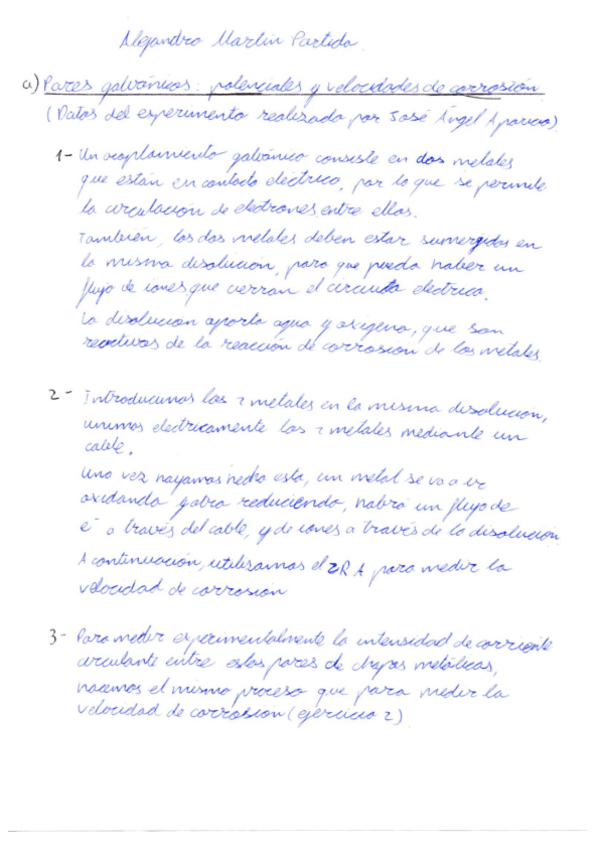 Alejandro Martín Partida.
a) Pares galvánicos: potenciales y velocidades de corrosión
(Datos del experimento realizado por José Ángel Aparicio)
1- Un acoplamiento galvánico consiste en dos metales
que están en contacto eléctrico, por lo que se permite
la circulación de electrones entre ellos.
También, los dos metales deben estar sumergidos en
la misma disolución, para que pueda haber un
flujo de iones que cierran el circuito eléctrico.
La disolución aporta agua y oxígeno, que son
reactivos de la reacción de corrosión de los metales.
2- Introducimos los 2 metales en la misma disolución,
unimos electricamente los 2 metales mediante un
cable.
Una vez hayamos hecho esto, un metal se va a ir
oxidando y otro reduciendo, habrá un flujo de
e⁻ a través del cable, y de iones a través de la disolución
A continuación, utilisamos el ZRA para medir la
velocidad de corrosión
3- Para medir experimentalmente la intensidad de corriente
circulante entre estos pares de chapas metálicas,
hacemos el mismo proceso que para medir la
velocidad de corrosión (ejercicio 2)